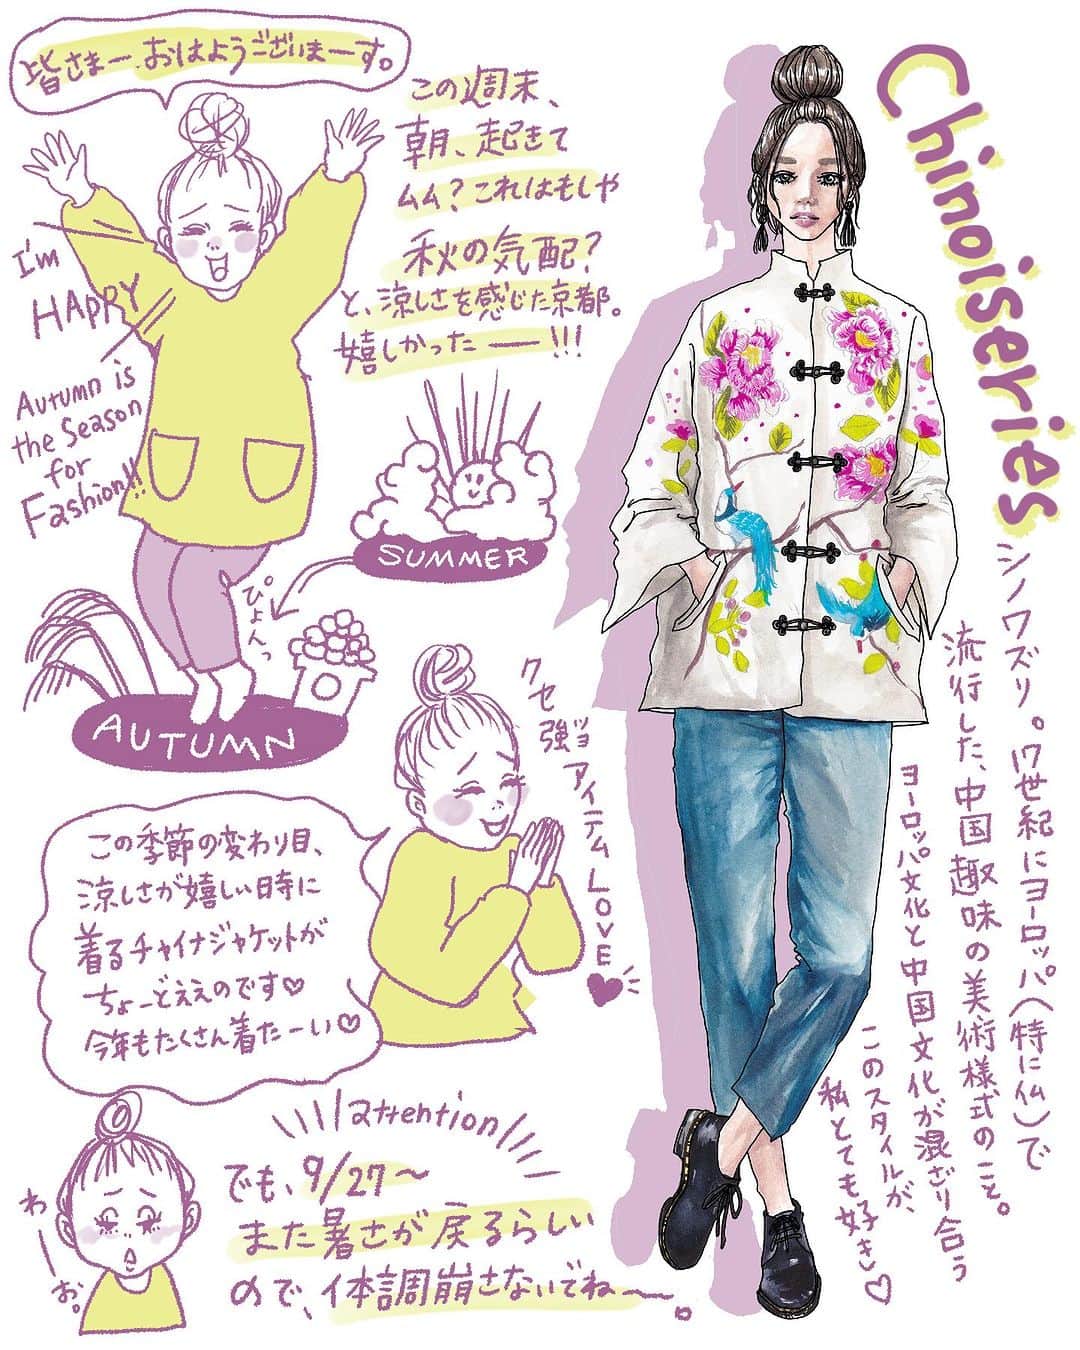 皆さまー、おはようございまーす。
この週末、
朝、起きて
ムム?これはもしや
秋の気配?
と、涼しさを感じた京都。
嬉しかったー!!!
I'm
HAPPY
Autumn is
the Season
for
Fashion!!
SUMMER
ぴょんっ
AUTUMN
クセ強ッヨアイテムLOVE
この季節の変わり目、
涼しさが嬉しい日時に
着るチャイナジャケットが
ちょーどええのです♡
今年もたくさん着たーい♡
attention
でも、9/27～
また暑さが戻るらしい
ので、体調崩さないでね〜。
わー
お。
Chinoiseries
シノワズリ。17世紀にヨーロッパ(特に仏)で
流行した、中国趣味の美術様式のこと。
ヨーロッパ文化と中国文化が混ざり合う
このスタイルが、
私とても好き♡